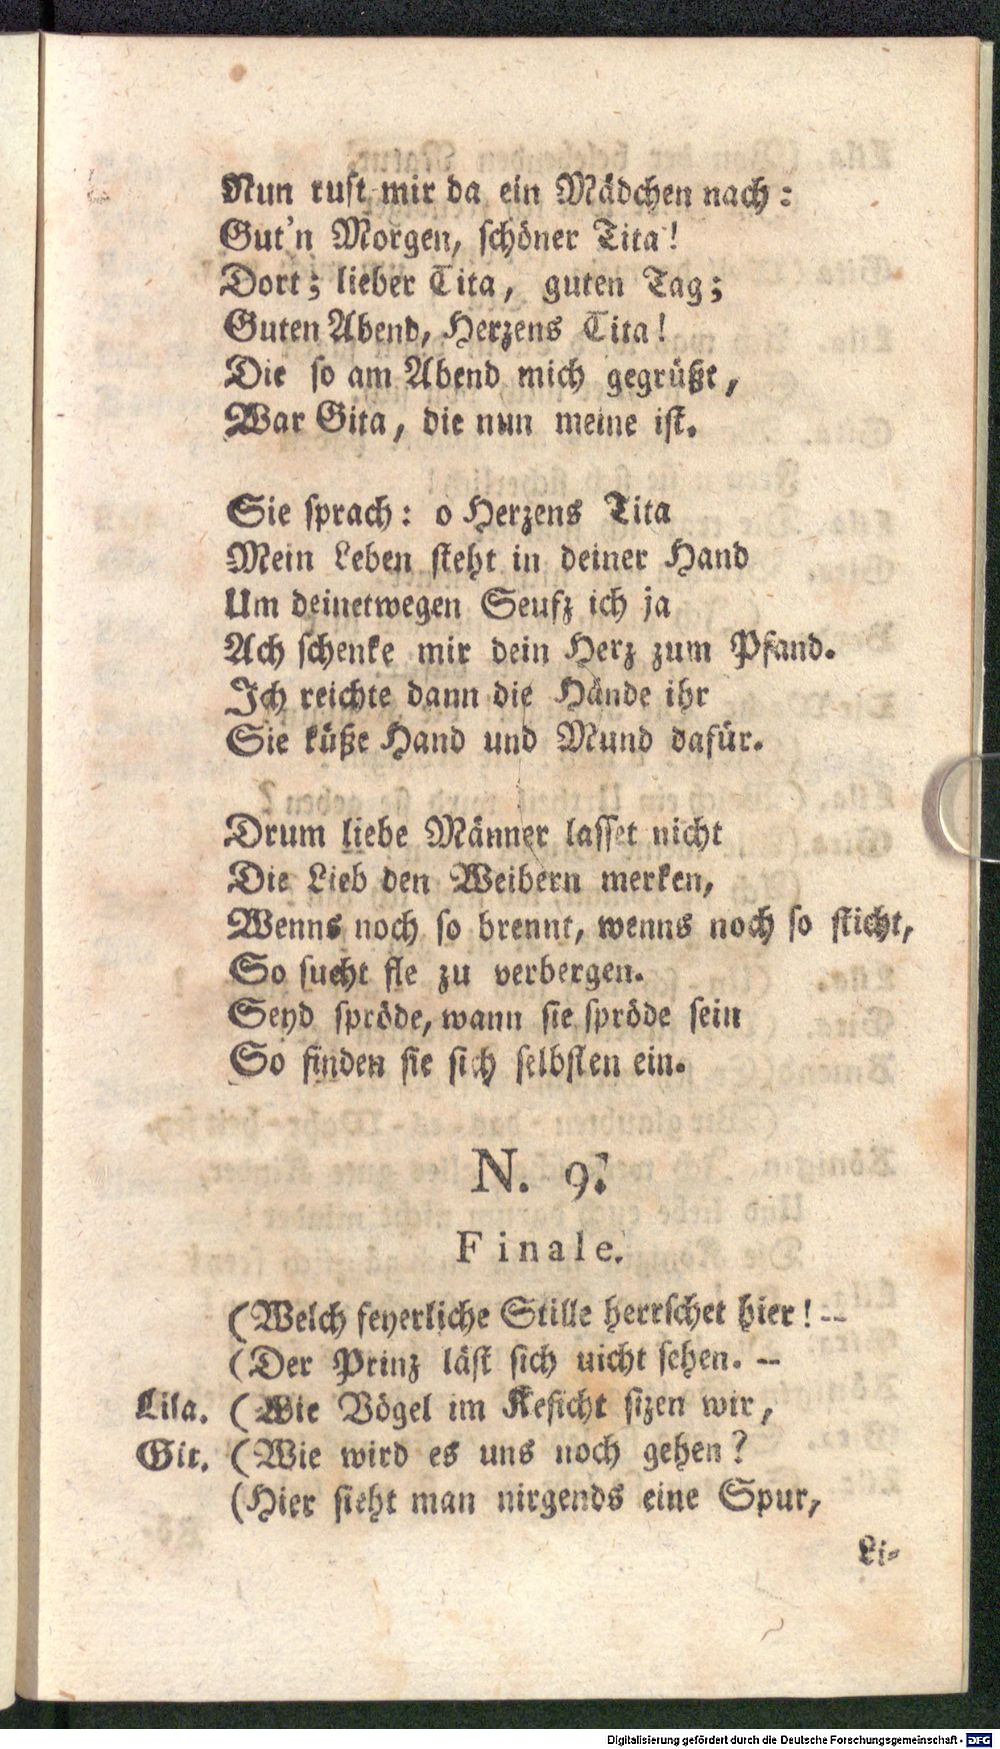 Nun ruft mir da ein Mädchen nach:
Gut'n Morgen, schöner Tita!
Dort; lieber Tita, guten Tag;
Guten Abend, Herzens Tita!
Die so am Abend mich gegrüßt,
War Gita, die nun meine ist.
Sie sprach: o Herzens Tita
Mein Leben steht in deiner Hand
Um deinetwegen Seufz ich ja
Ach schenke mir dein Herz zum Pfand.
Ich reichte dann die Hände ihr
Sie küßte Hand und Mund dafür.
Drum liebe Männer lasset nicht
Die Lieb den Weibern merken,
Wenns noch so brennt, wenns noch so sticht,
So sucht sie zu verbergen.
Seyd spröde, wann sie spröde sein
So finden sie sich selbsten ein.
N. 9.
Finale.
(Welch feyerliche Stille herrschet hier! --
(Der Prinz läst sich uicht sehen. --
Lila. (Wie Vögel im Kesicht sizen wir,
Git. (Wie wird es uns noch gehen?
(Hier sieht man nirgends eine Spur,
Li-
Digitalisierung gefördert durch die Deutsche Forschungsgemeinschaft - DFG